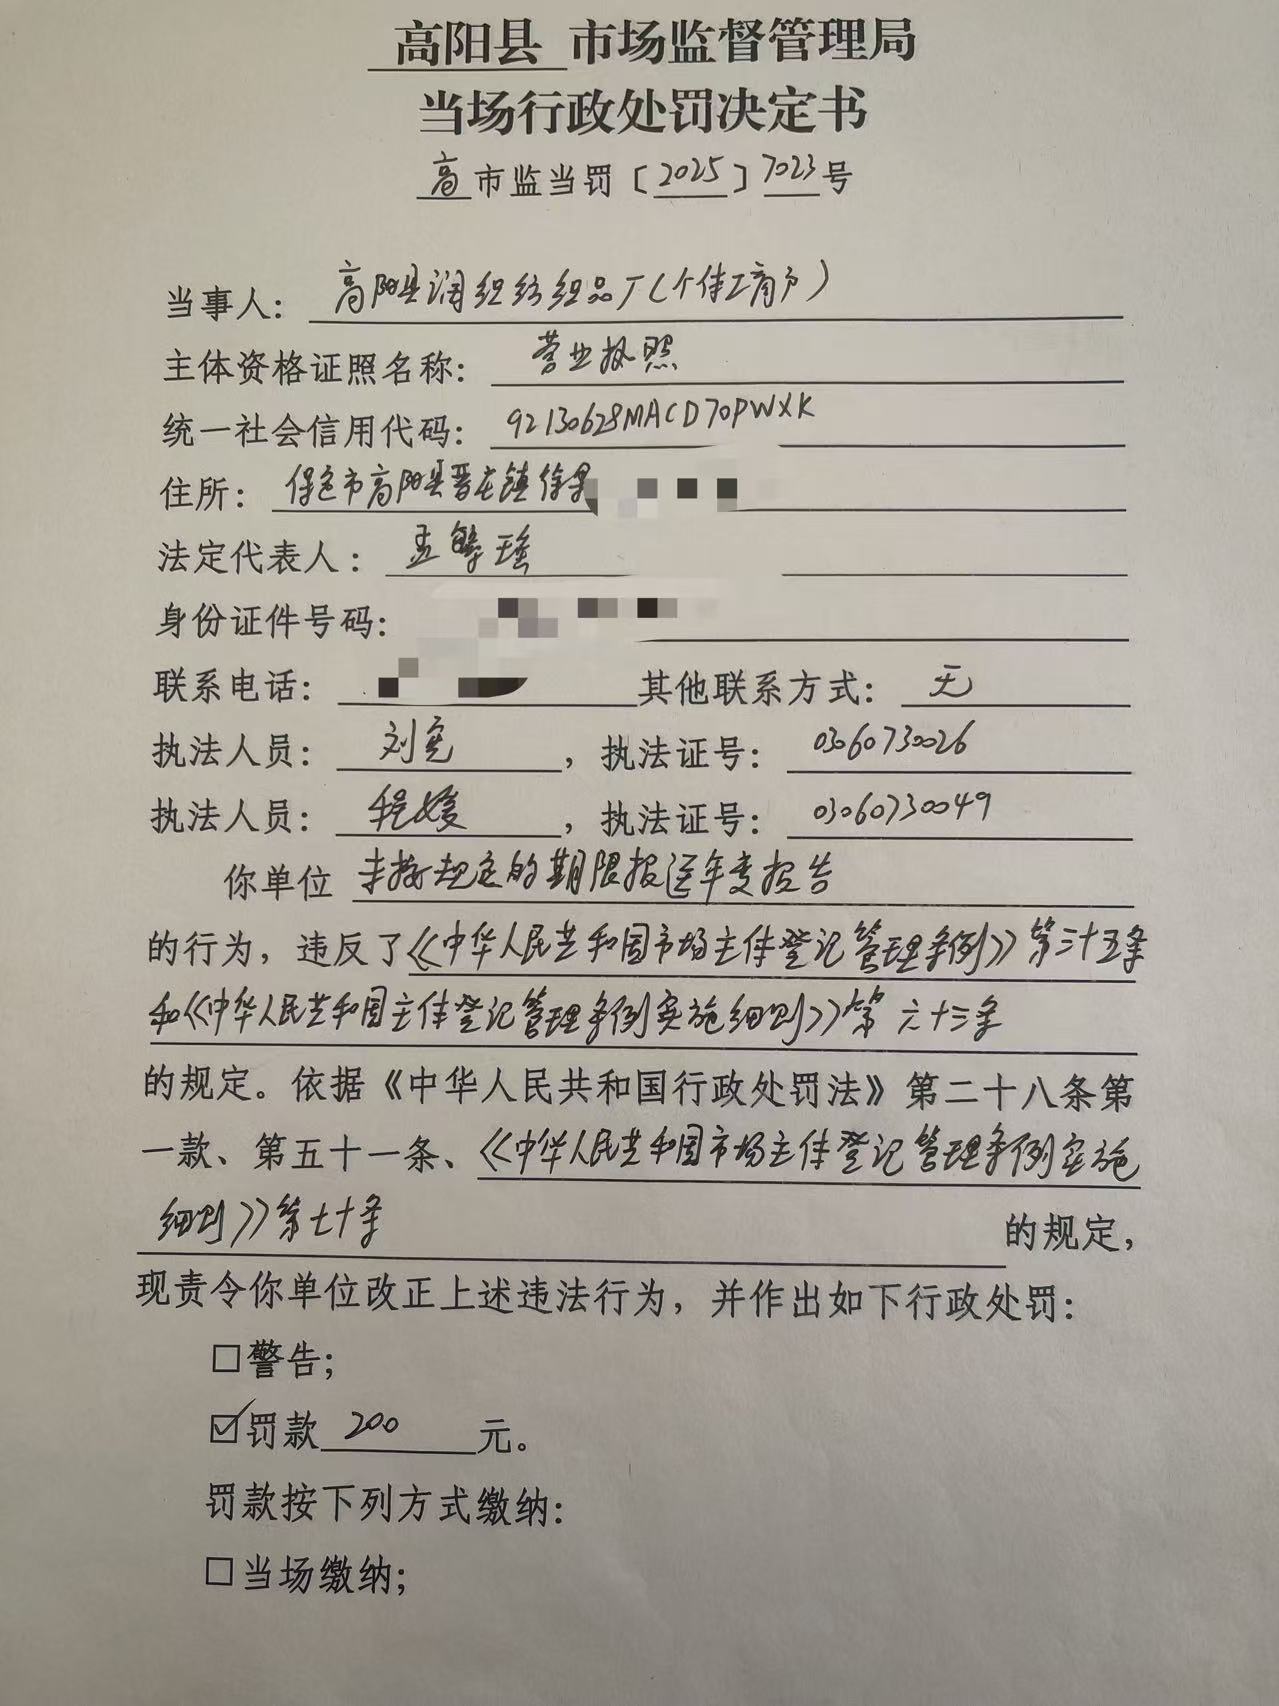 高阳县 市场监督管理局
当场行政处罚决定书
高市监当罚〔2025〕7023号
当事人：高阳县润织纺织品厂(个体工商户)
主体资格证照名称：营业执照
统一社会信用代码：92130628MACD70PWXK
住所：保定市高阳县晋庄镇徐果
法定代表人：孟 瑶
身份证件号码：
联系电话： 其他联系方式：无
执法人员：刘亮，执法证号：03060730026
执法人员：程媛，执法证号：03060730049
你单位 未按规定的期限报送年度报告
的行为，违反了《中华人民共和国市场主体登记管理条例》第三十五条
和《中华人民共和国主体登记管理条例实施细则》第六十三条
的规定。依据《中华人民共和国行政处罚法》第二十八条第
一款、第五十一条、《中华人民共和国市场主体登记管理条例实施
细则》第七十条 的规定，
现责令你单位改正上述违法行为，并作出如下行政处罚：
□警告；
☑罚款 200 元。
罚款按下列方式缴纳：
□当场缴纳；